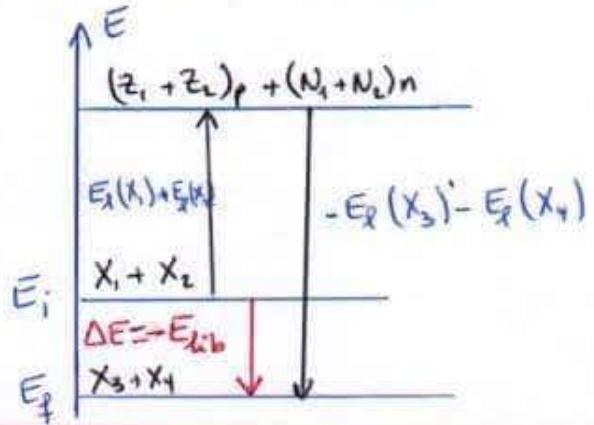 E
(Z₁ + Z₂)p + (N₁+N₂)n
Eℓ(X₁)+Eℓ(X₂)
-Eℓ(X₃) - Eℓ(X₄)
X₁ + X₂
Ei
ΔE=-Elib
X₃+X₄
Ef